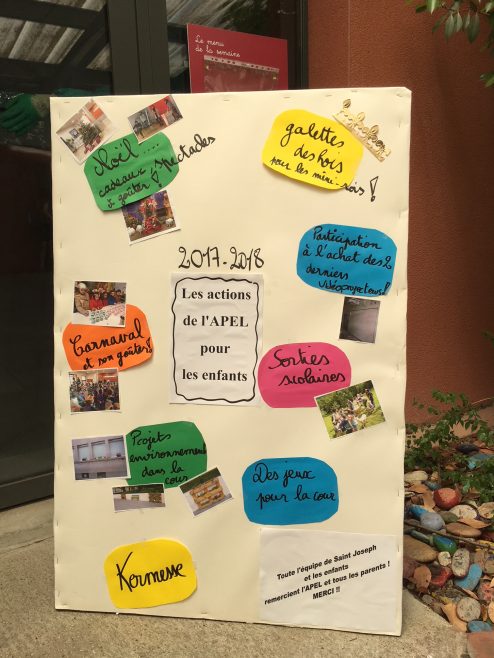 Le menu
de la semaine
Noël ....
cadeaux spectacles
à goûter !
galettes
des rois
pour les mini-rois !
2017-2018
Participation
à l'achat des 2
derniers
vidéoprojecteurs !
Les actions
de l'APEL
pour
les enfants
Carnaval
et son goûter !
Sorties
scolaires
Projets
environnement
dans la
cour
Des jeux
pour la cour
Kermesse
Toute l'équipe de Saint Joseph
et les enfants
remercient l'APEL et tous les parents !
MERCI !!